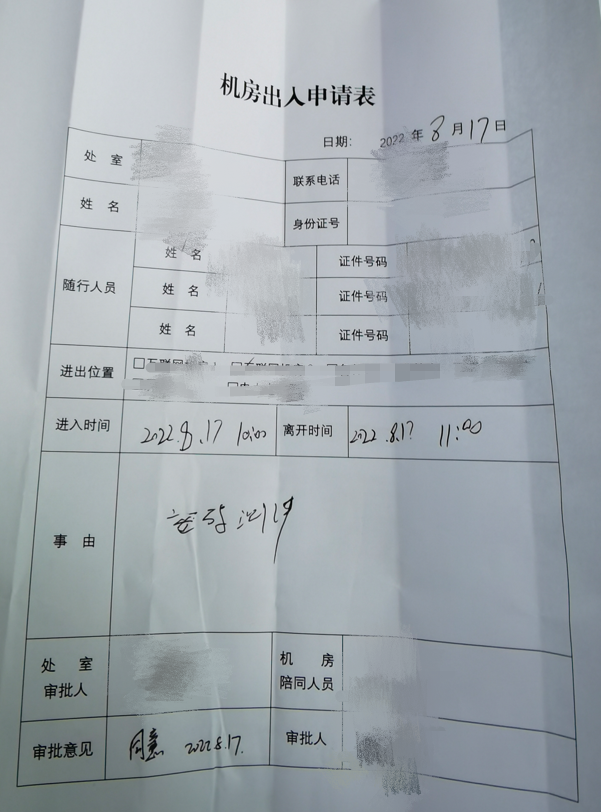 机房出入申请表
日期: 2022 年 8 月 17 日
处 室
联系电话
姓 名
身份证号
随行人员
姓 名 证件号码
姓 名 证件号码
姓 名 证件号码
进出位置
进入时间 2022.8.17 10:00 离开时间 2022.8.17 11:00
事 由
处 室
审批人
机 房
陪同人员
审批意见 同意 2022.8.17. 审批人